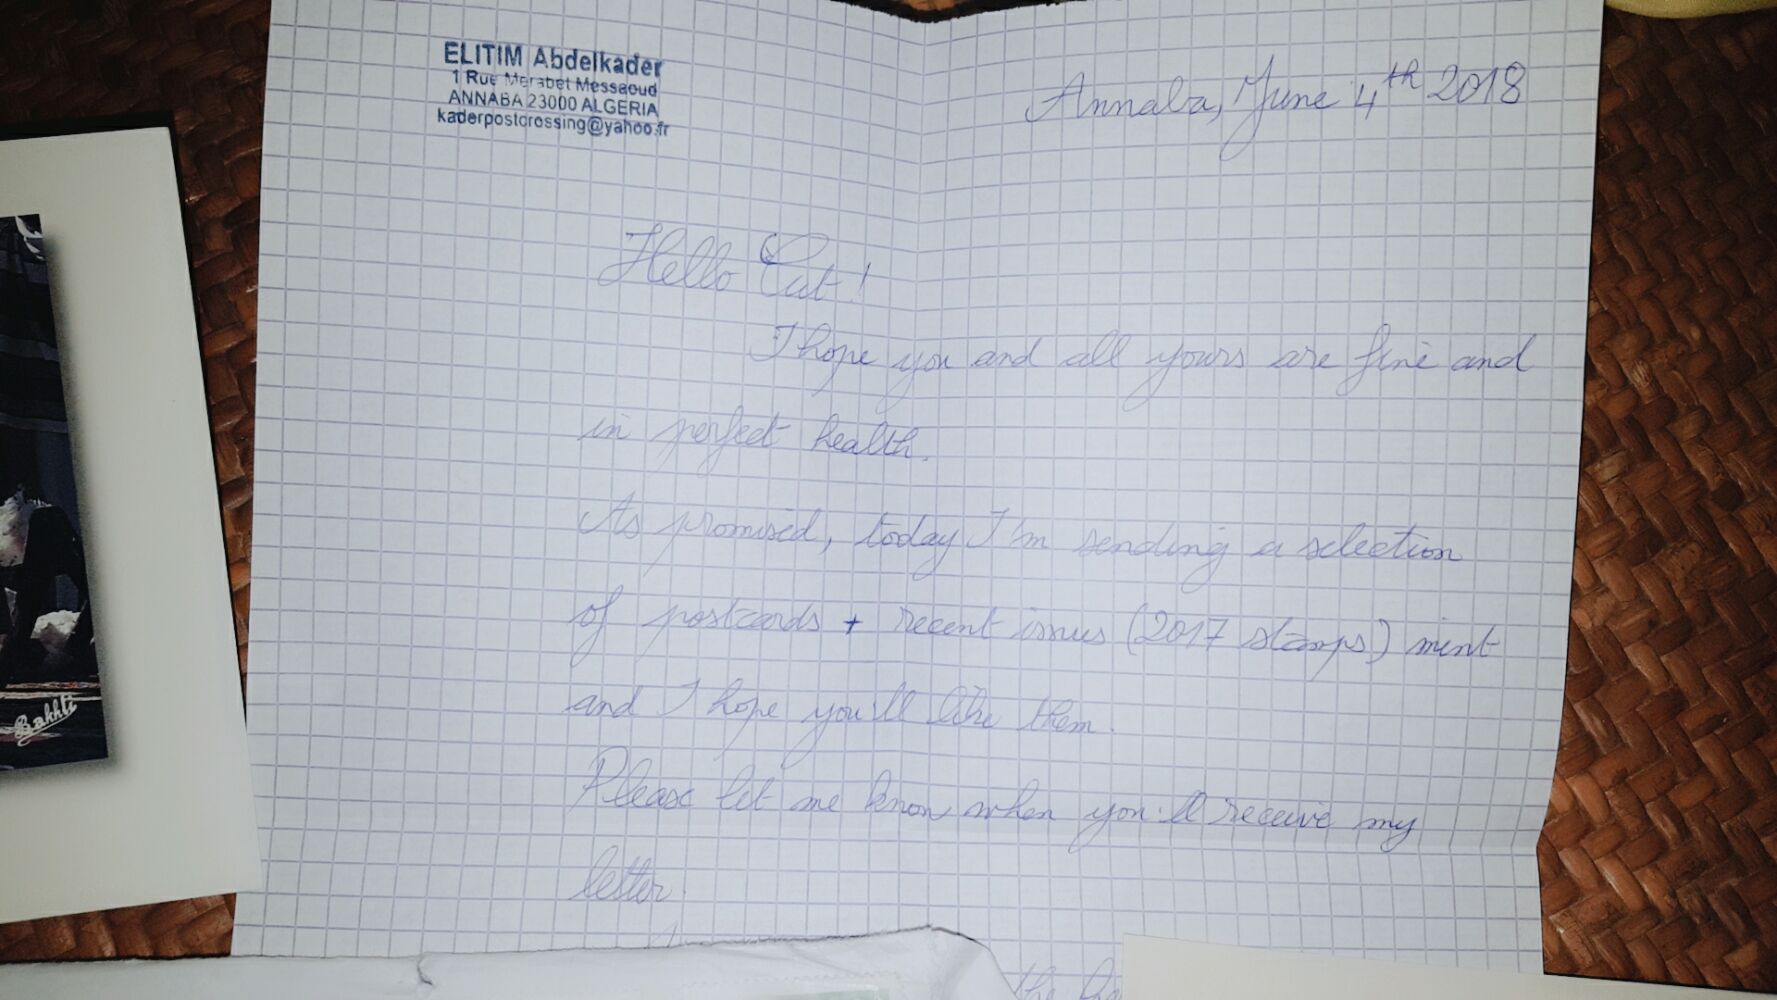 ELITIM Abdelkader
1 Rue Merabet Messaoud
ANNABA 23000 ALGERIA
kaderpostcrossing@yahoo.fr
Annaba, June 4th 2018
Hello Cat!
I hope you and all yours are fine and
in perfect health.
As promised, today I'm sending a selection
of postcards + recent issues (2017 stamps) mint
and I hope you'll like them.
Please let me know when you'll receive my
letter.
the
Bakhti